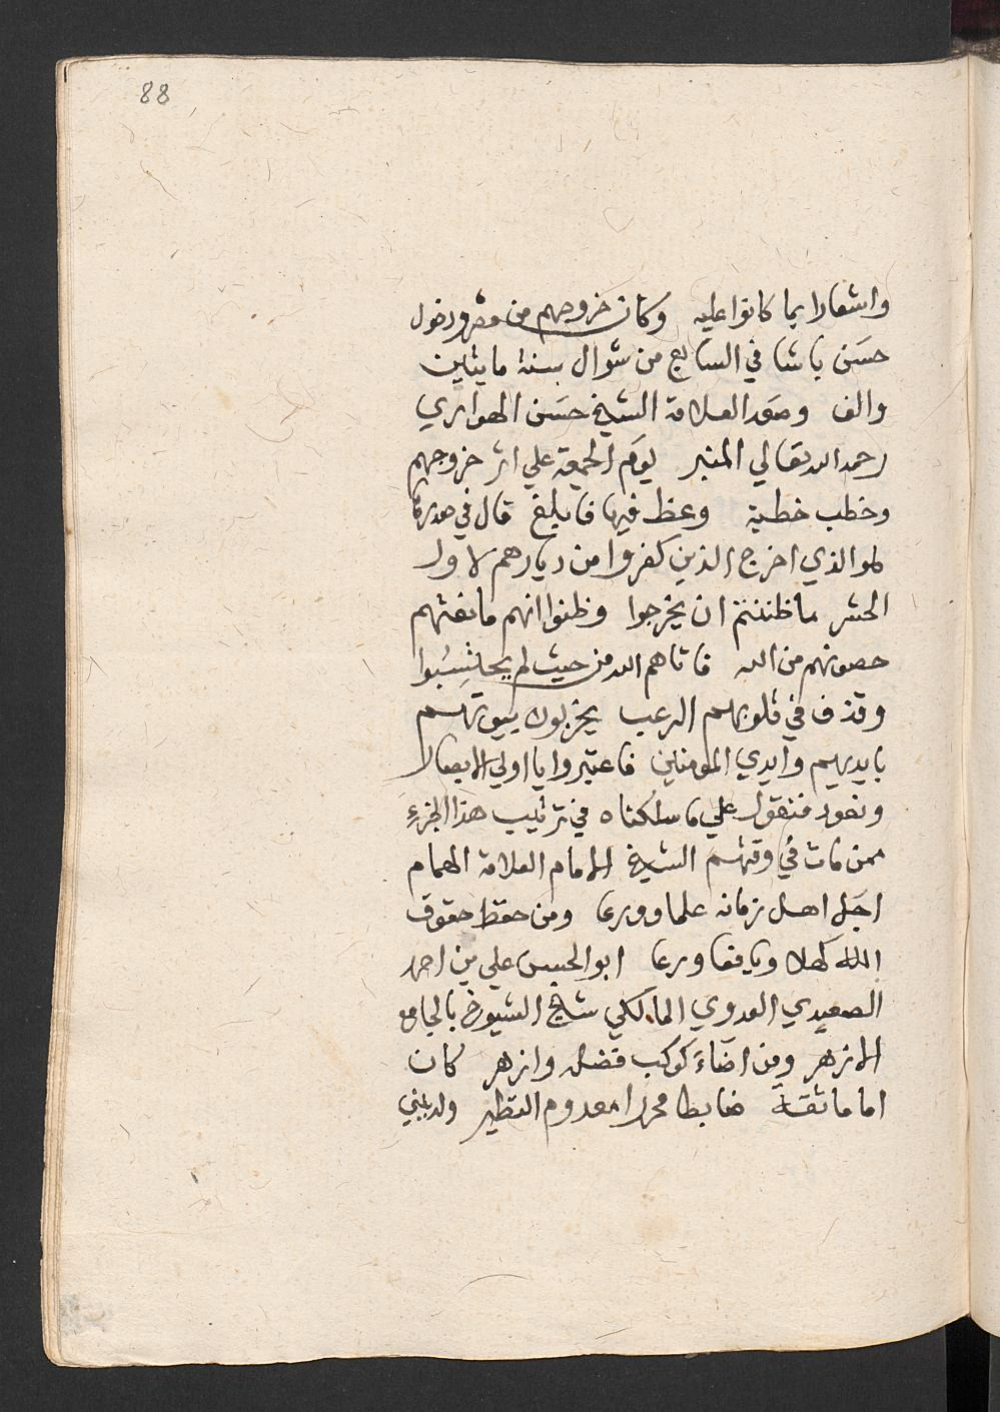 88
واشعارا بما كانوا عليه وكان خروجهم من مصر ودخول
حسن باشا في السابع من شوال سنة مايتين
والف وصعد العلامة الشيخ حسن الهواري
رحمه الله تعالي المنبر يوم الجمعة علي اثر خروجهم
وخطب خطبة وعظ فيها فابلغ قال في صدرها
هو الذي اخرج الذين كفروا من ديارهم لاول
الحشر ما ظننتم ان يخرجوا وظنوا انهم مانعتهم
حصونهم من الله فاتاهم الله من حيث لم يحتسبوا
وقذف في قلوبهم الرعب يخربون بيوتهم
بايديهم وايدي المومنين فاعتبروا يا اولي الابصار
ونعود فنقول علي ما سلكناه في ترتيب هذا الجزء
ممن مات في وقتهم الشيخ الامام العلامة الهمام
اجل اهل زمانه علما وورعا ومن حفظ حقوق
الله كهلا ويافعا ورعا ابو الحسن علي بن احمد
الصعيدي العدوي المالكي شيخ الشيوخ بالجامع
الازهر ومن اضآء كوكب فضله وازهر كان
اماما ثقة ضابطا محررا معدوم النظير ولد ببني